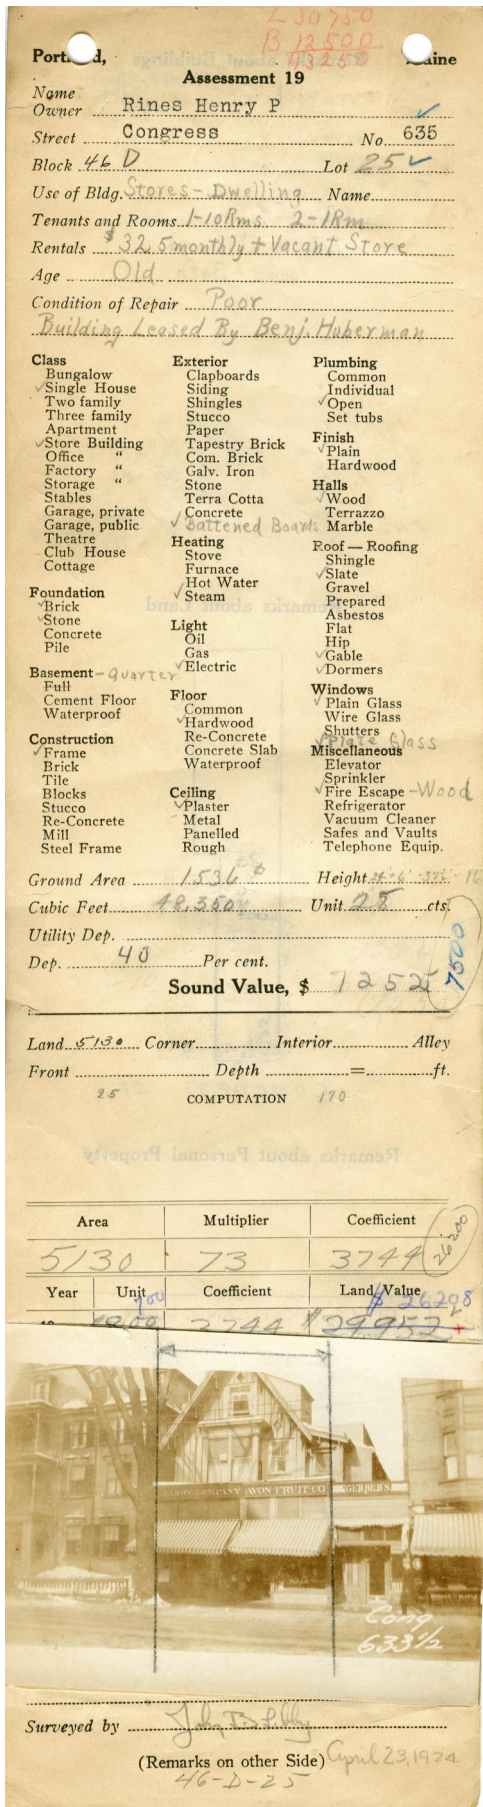 L 30750
B 12500
43250
Portland, Maine
Assessment 19
Name
Owner Rines Henry P
Street Congress No 635
Block 46 D Lot 25
Use of Bldg. Stores - Dwelling Name
Tenants and Rooms 1-10Rms 2-1Rm
Rentals $32.5 monthly + Vacant Store
Age Old
Condition of Repair Poor
Building Leased By Benj. Huberman
Class
Bungalow
✓Single House
Two family
Three family
Apartment
✓Store Building
Office "
Factory "
Storage "
Stables
Garage, private
Garage, public
Theatre
Club House
Cottage
Foundation
✓Brick
✓Stone
Concrete
Pile
Basement - quarter
Full
Cement Floor
Waterproof
Construction
✓Frame
Brick
Tile
Blocks
Stucco
Re-Concrete
Mill
Steel Frame
Exterior
Clapboards
Siding
Shingles
Stucco
Paper
Tapestry Brick
Com. Brick
Galv. Iron
Stone
Terra Cotta
Concrete
✓Battened Boards
Heating
Stove
Furnace
Hot Water
✓Steam
Light
Oil
Gas
✓Electric
Floor
Common
✓Hardwood
Re-Concrete
Concrete Slab
Waterproof
Ceiling
✓Plaster
Metal
Panelled
Rough
Plumbing
Common
Individual
✓Open
Set tubs
Finish
✓Plain
Hardwood
Halls
✓Wood
Terrazzo
Marble
Roof — Roofing
Shingle
✓Slate
Gravel
Prepared
Asbestos
Flat
Hip
✓Gable
✓Dormers
Windows
✓Plain Glass
Wire Glass
Shutters
✓Plate Glass
Miscellaneous
Elevator
Sprinkler
✓Fire Escape - Wood
Refrigerator
Vacuum Cleaner
Safes and Vaults
Telephone Equip.
Ground Area 1536 Height
Cubic Feet 48,350 Unit 25 cts.
Utility Dep.
Dep. 40 Per cent.
Sound Value, $ 7252 7500
Land 5130 Corner Interior Alley
Front Depth = ft.
25 COMPUTATION 170
Area Multiplier Coefficient
5130 73 3744 26200
Year Unit Coefficient Land Value
700 $ 26208
3744 $29952
COMPANY AVON FRUIT CO GERBER'S
Cong
633 1/2
Surveyed by John B. Libby
(Remarks on other Side) April 23, 1924
46-D-25